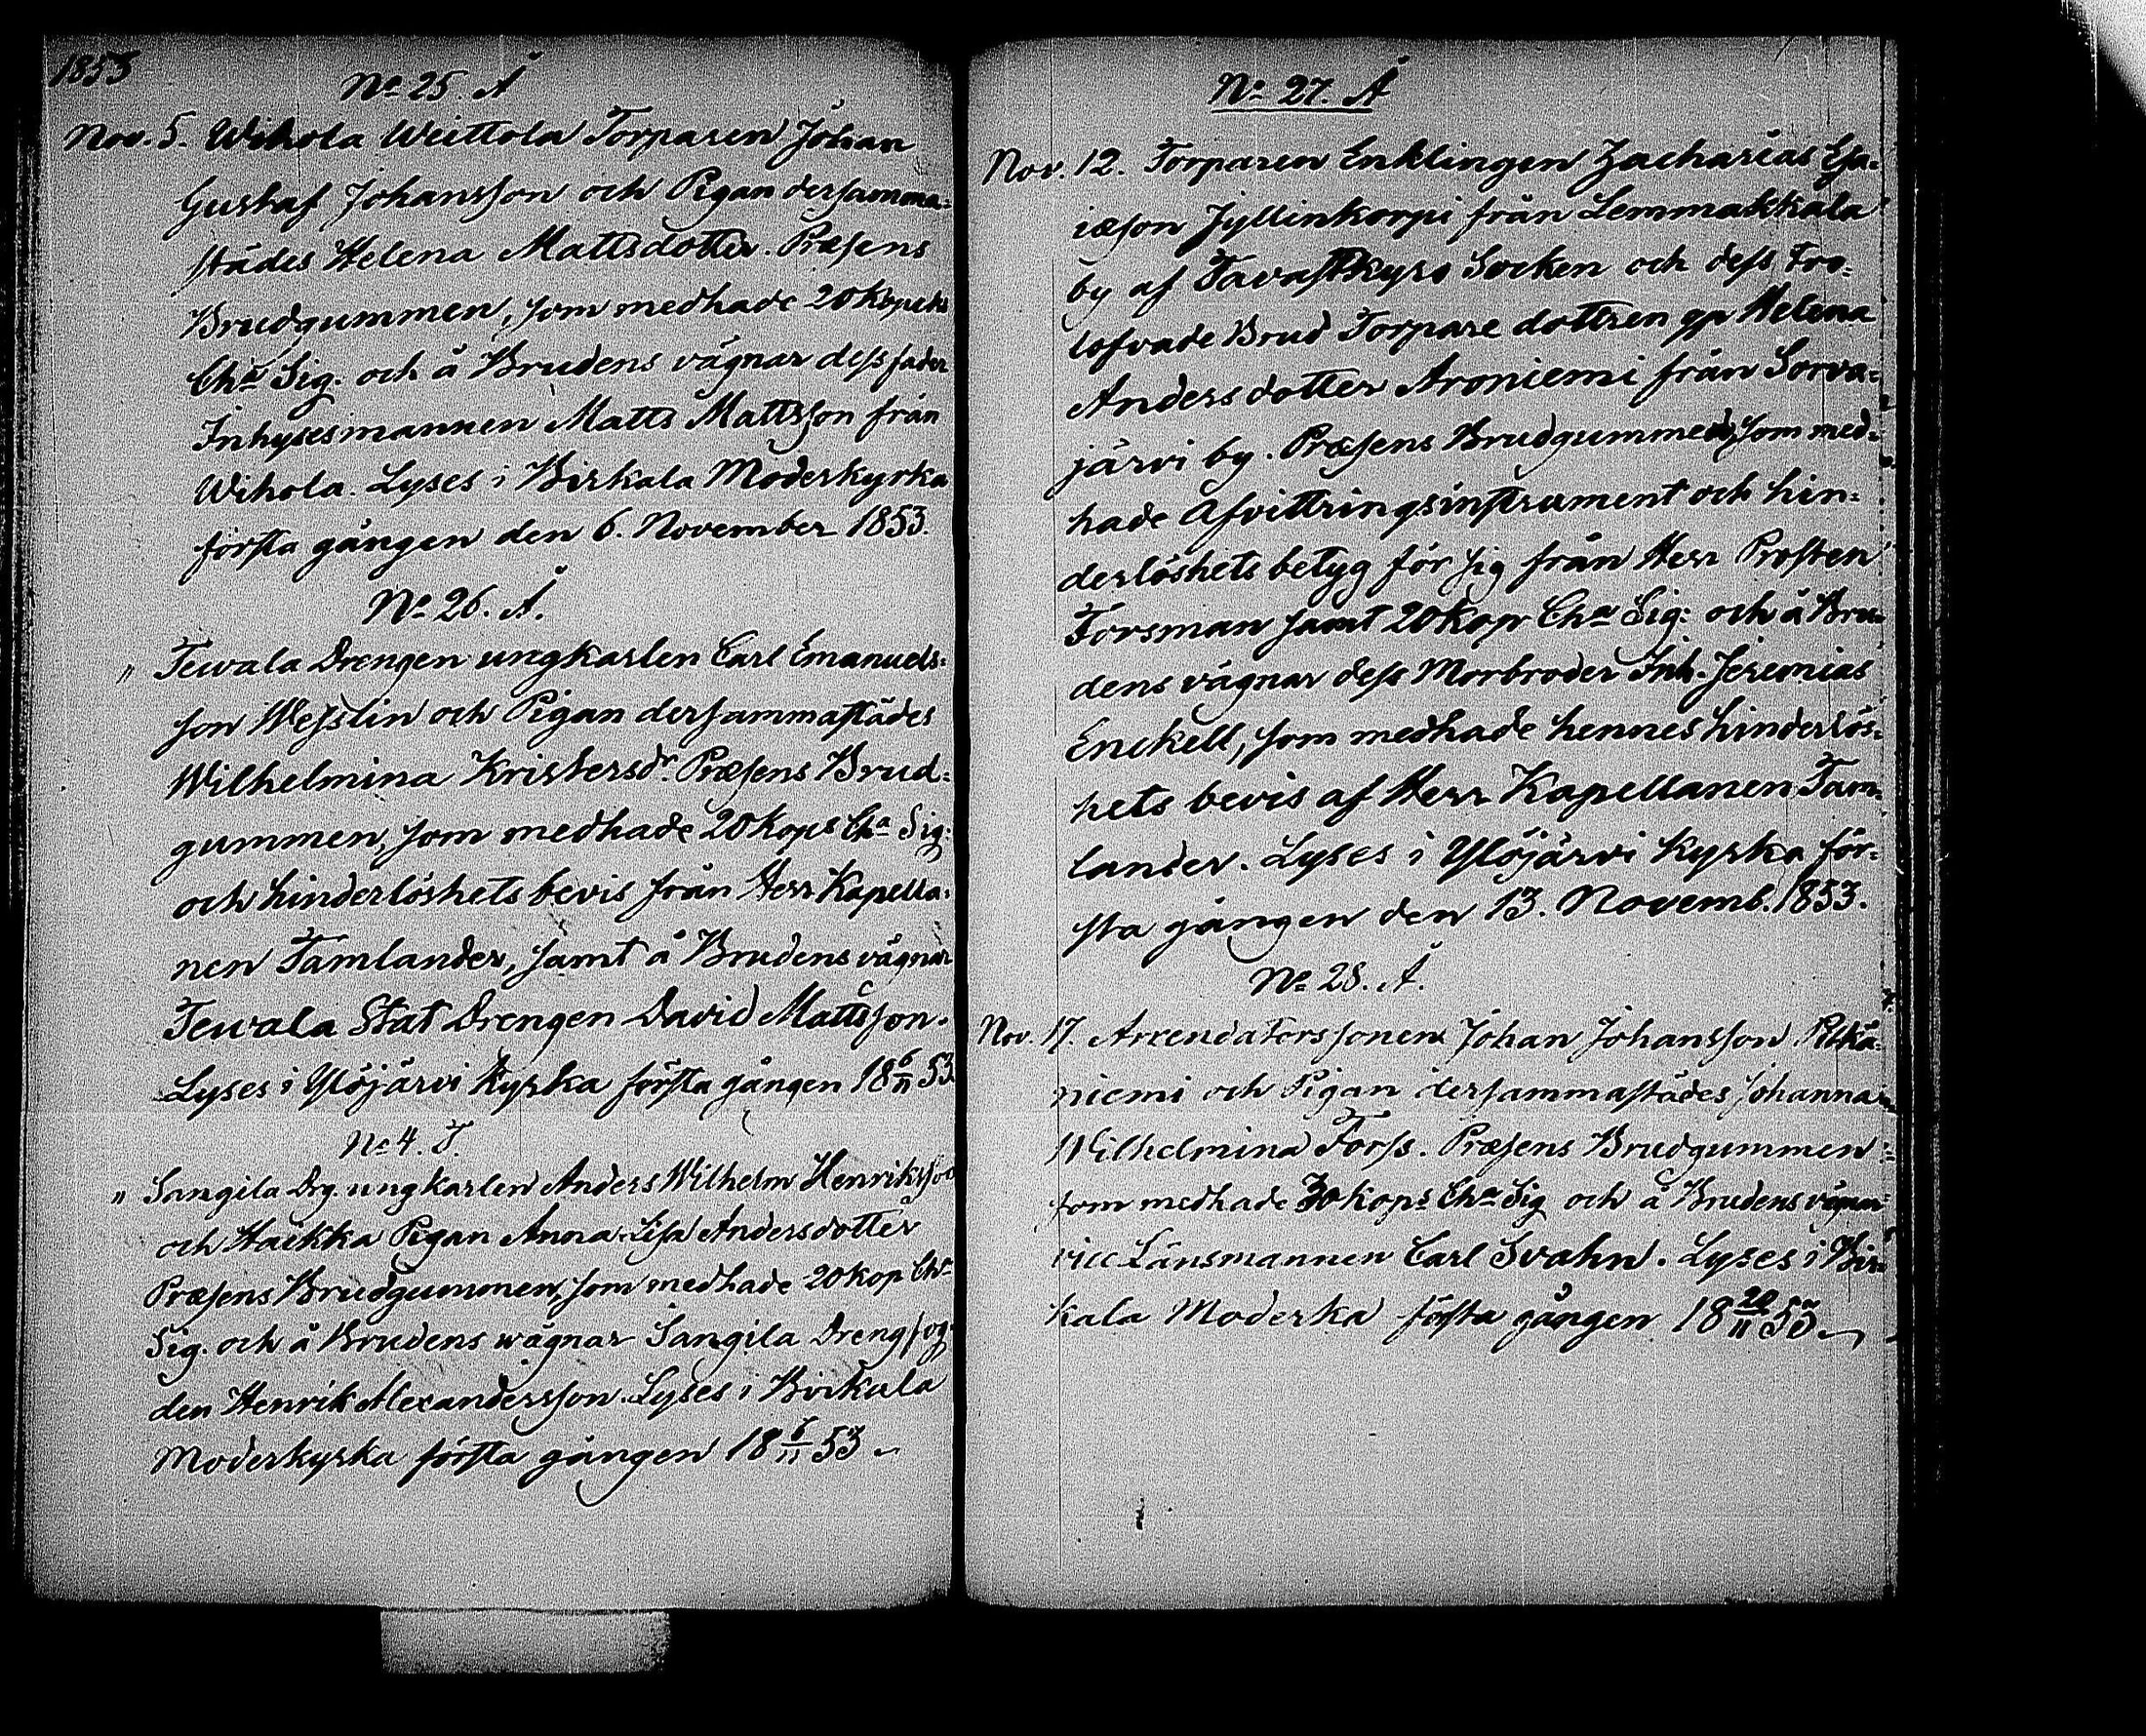 1853
No 25. Å
Nov. 5. Wihola Weittola Torparen Johan
Gustaf Johansson och Pigan dersamma-
städes Helena Mattsdotter. Præsens
Brudgummen, som medhade 20 kopeks
Cha Sig. och å Brudens vägnar dess fader
Inhysesmannen Matts Mattsson från
Wihola. Lyses i Birkala Moderkyrka
första gången den 6. November 1853.
No 26. Å.
" Tewala Drengen ungkarlen Carl Emanuels-
son Wesslin och Pigan dersammastädes
Wilhelmina Kristersdr. Præsens Brud-
gummen, som medhade 20 kops Cha Sig:
och hinderlöshets bevis från Herr Kapella-
nen Tamlander, samt å Brudens vägnar
Tewala Stat Drengen David Mattsson.
Lyses i Ylöjärvi Kyrka första gången 18 6/11 53.
No 4. T.
" Sangila Drg. ungkarlen Anders Wilhelm Henriksson
och Haikka Pigan Anna Lisa Andersdotter
Præsens Brudgummen, som medhade 20 kop Cha
Sig. och å Brudens wägnar Sangila Drengfog-
den Henrik Alexandersson. Lyses i Birkala
Moderkyrka första gången 18 6/11 53
No 27. Å
Nov. 12. Torparen Enklingen Zacharias Esa-
iæson Jyllinkorpi från Lemmakkala
by af Tavastkyro Socken och dess Tro-
lofvade Brud Torpare dottren Helena
Anders dotter Aroniemi från Sorva-
järvi by. Præsens Brudgummen, som med-
hade Afvittringsinstrument och hin-
derlöshets betyg för sig från Herr Prosten
Forsman samt 20 kop Cha Sig: och å Bru-
dens vägnar dess Morbroder Inh. Jeremias
Enckell, som medhade hennes hinderlös-
hets bevis af Herr Kapellanen Tam-
lander. Lyses i Ylöjärvi Kyrka för-
sta gången den 13. Novemb. 1853.
No 28. Å.
Nov. 17. Arrendatorssonen Johan Johansson Pitkä-
niemi och Pigan dersammastädes Johanna
Wilhelmina Forss. Præsens Brudgummen
som medhade 30 kops Cha Sig och å Brudens vägnar
vice Länsmannen Carl Svahn. Lyses i Bir-
kala Moderka första gången 18 20/11 53